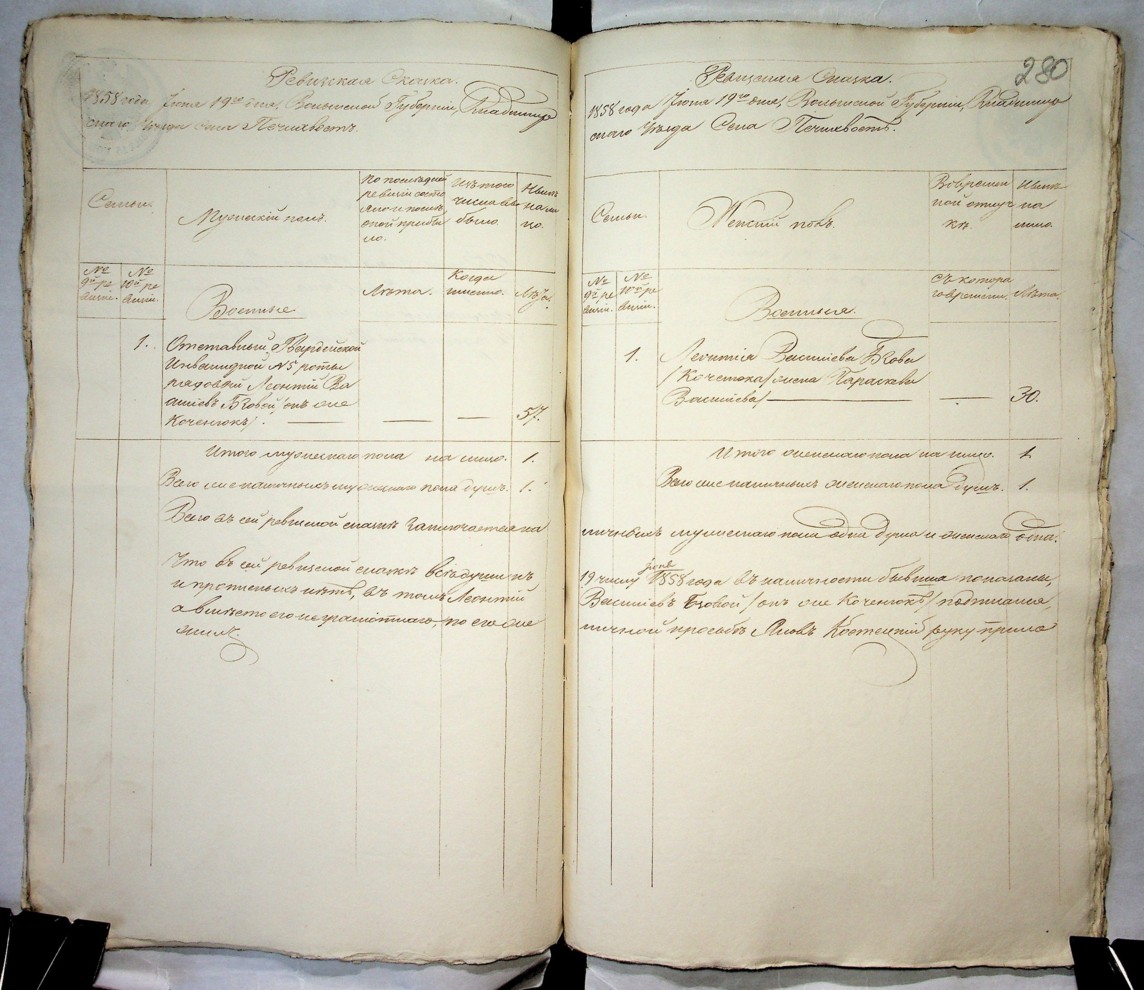 Ревизская Сказка.
1858 года Июня 19го дня, Волынской Губерніи, Владимир
скаго Уѣзда Села Печихвостъ.
Семьи.
Мужескій полъ.
По послѣдней
ревизіи состо
яло и послѣ
оной прибы
ло.
Изъ того
числа вы
было.
Нынѣ
на ли
цо.
№ 9й ре визіи.
№ 10й ре визіи.
Военные
Лѣта.
Когда
именно.
Лѣта.
1. Отставный Гвардейской
Инвалидной № 5 роты
рядовой Леонтій Ва
силіевъ Бзовой /онъ же
Коченюкъ/. — — — 57.
Итого мужескаго пола на лицо. 1.
Всего же наличныхъ мужескаго пола душъ. 1.
Всего въ сей ревизской сказкѣ заключается на
Что въ сей ревизской сказкѣ всѣ души къ
и протчихъ нѣтъ, въ томъ Леонтій
а вмѣсто его неграмотнаго, по его же
жилъ.
280
Ревизская Сказка.
1858 года Июня 19го дня, Волынской Губерніи, Владимир
скаго Уѣзда Села Печихвостъ.
Семьи.
Женскій полъ.
Во времен
ной отлуч
кѣ.
Нынѣ
на
лицо.
№ 9й ре визіи.
№ 10й ре визіи.
Военныя.
Съ котора
го времени.
Лѣта.
1. Леонтія Василіева Бзова
/Коченюка/ жена Параскева
Василіева/ — — 30.
Итого женскаго пола на лицо. 1
Всего же наличныхъ женскаго пола душъ. 1.
личныхъ мужескаго пола одна душа и женскаго одна.
19 числу Іюня 1858 года въ наличности бывшіе показаны,
Василіевъ Бзовой /онъ же Коченюкъ/ подписался,
личной прозьбѣ Яковъ Костецкій руку прило